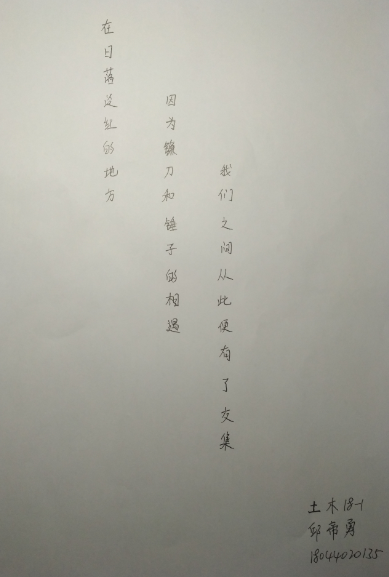 在日落泛红的地方
因为镰刀和锤子的相遇
我们之间从此便有了交集
土木18-1
邱希勇
18044020135